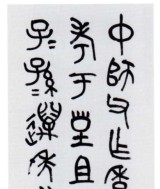 中師父乍季
考于皇且
子〓孫